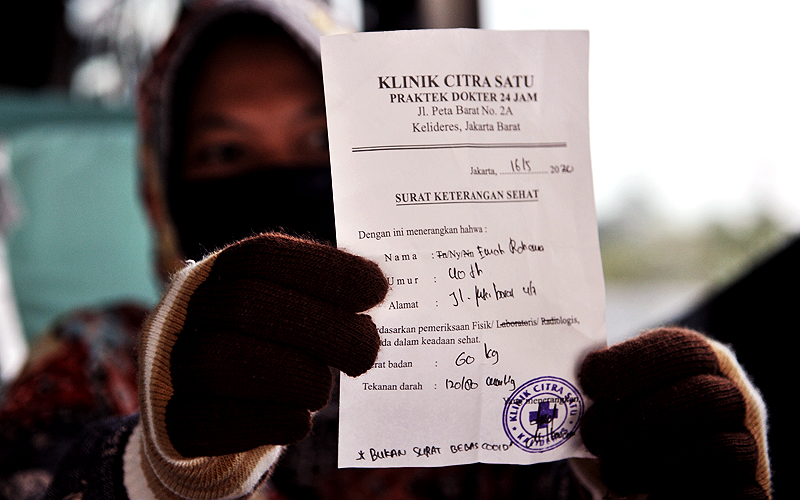 KLINIK CITRA SATU
PRAKTEK DOKTER 24 JAM
Jl. Peta Barat No. 2A
Kelideres, Jakarta Barat
Jakarta, 16/5 2020
SURAT KETERANGAN SEHAT
Dengan ini menerangkan bahwa :
Nama : Tn/Ny/Nn
Umur : 40 th
Alamat : Jl.
rdasarkan pemeriksaan Fisik/ Laboratoris/ Radiologis,
da dalam keadaan sehat.
erat badan : 60 kg
Tekanan darah : 120/80
menerangkan
KLINIK CITRA SATU
* BUKAN SURAT BEBAS COVID